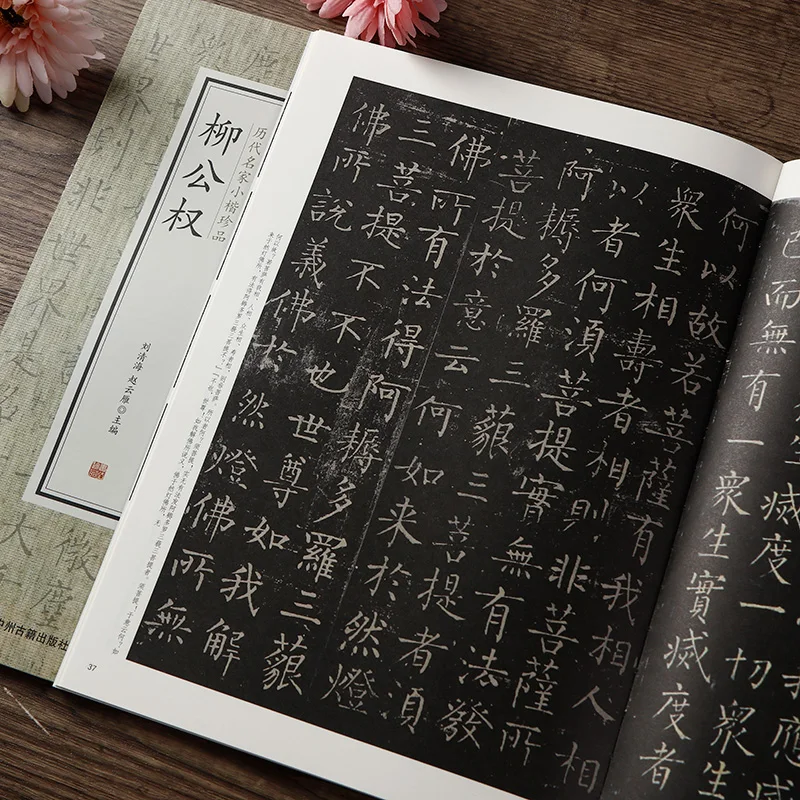 历代名家小楷珍品
柳公权
刘清海 赵云雁◎主编
州古籍出版社
滅度一切衆生
已而無有一衆生實滅度者
何以故若菩薩有我相人相
衆生相壽者相則非菩薩所
以者何湏菩提實無有法發
阿耨多羅三藐三菩提者湏
菩提於意云何如来於然燈
佛所有法得阿耨多羅三藐
三菩提不不也世尊如我解
佛所說義佛於然燈佛所無
37